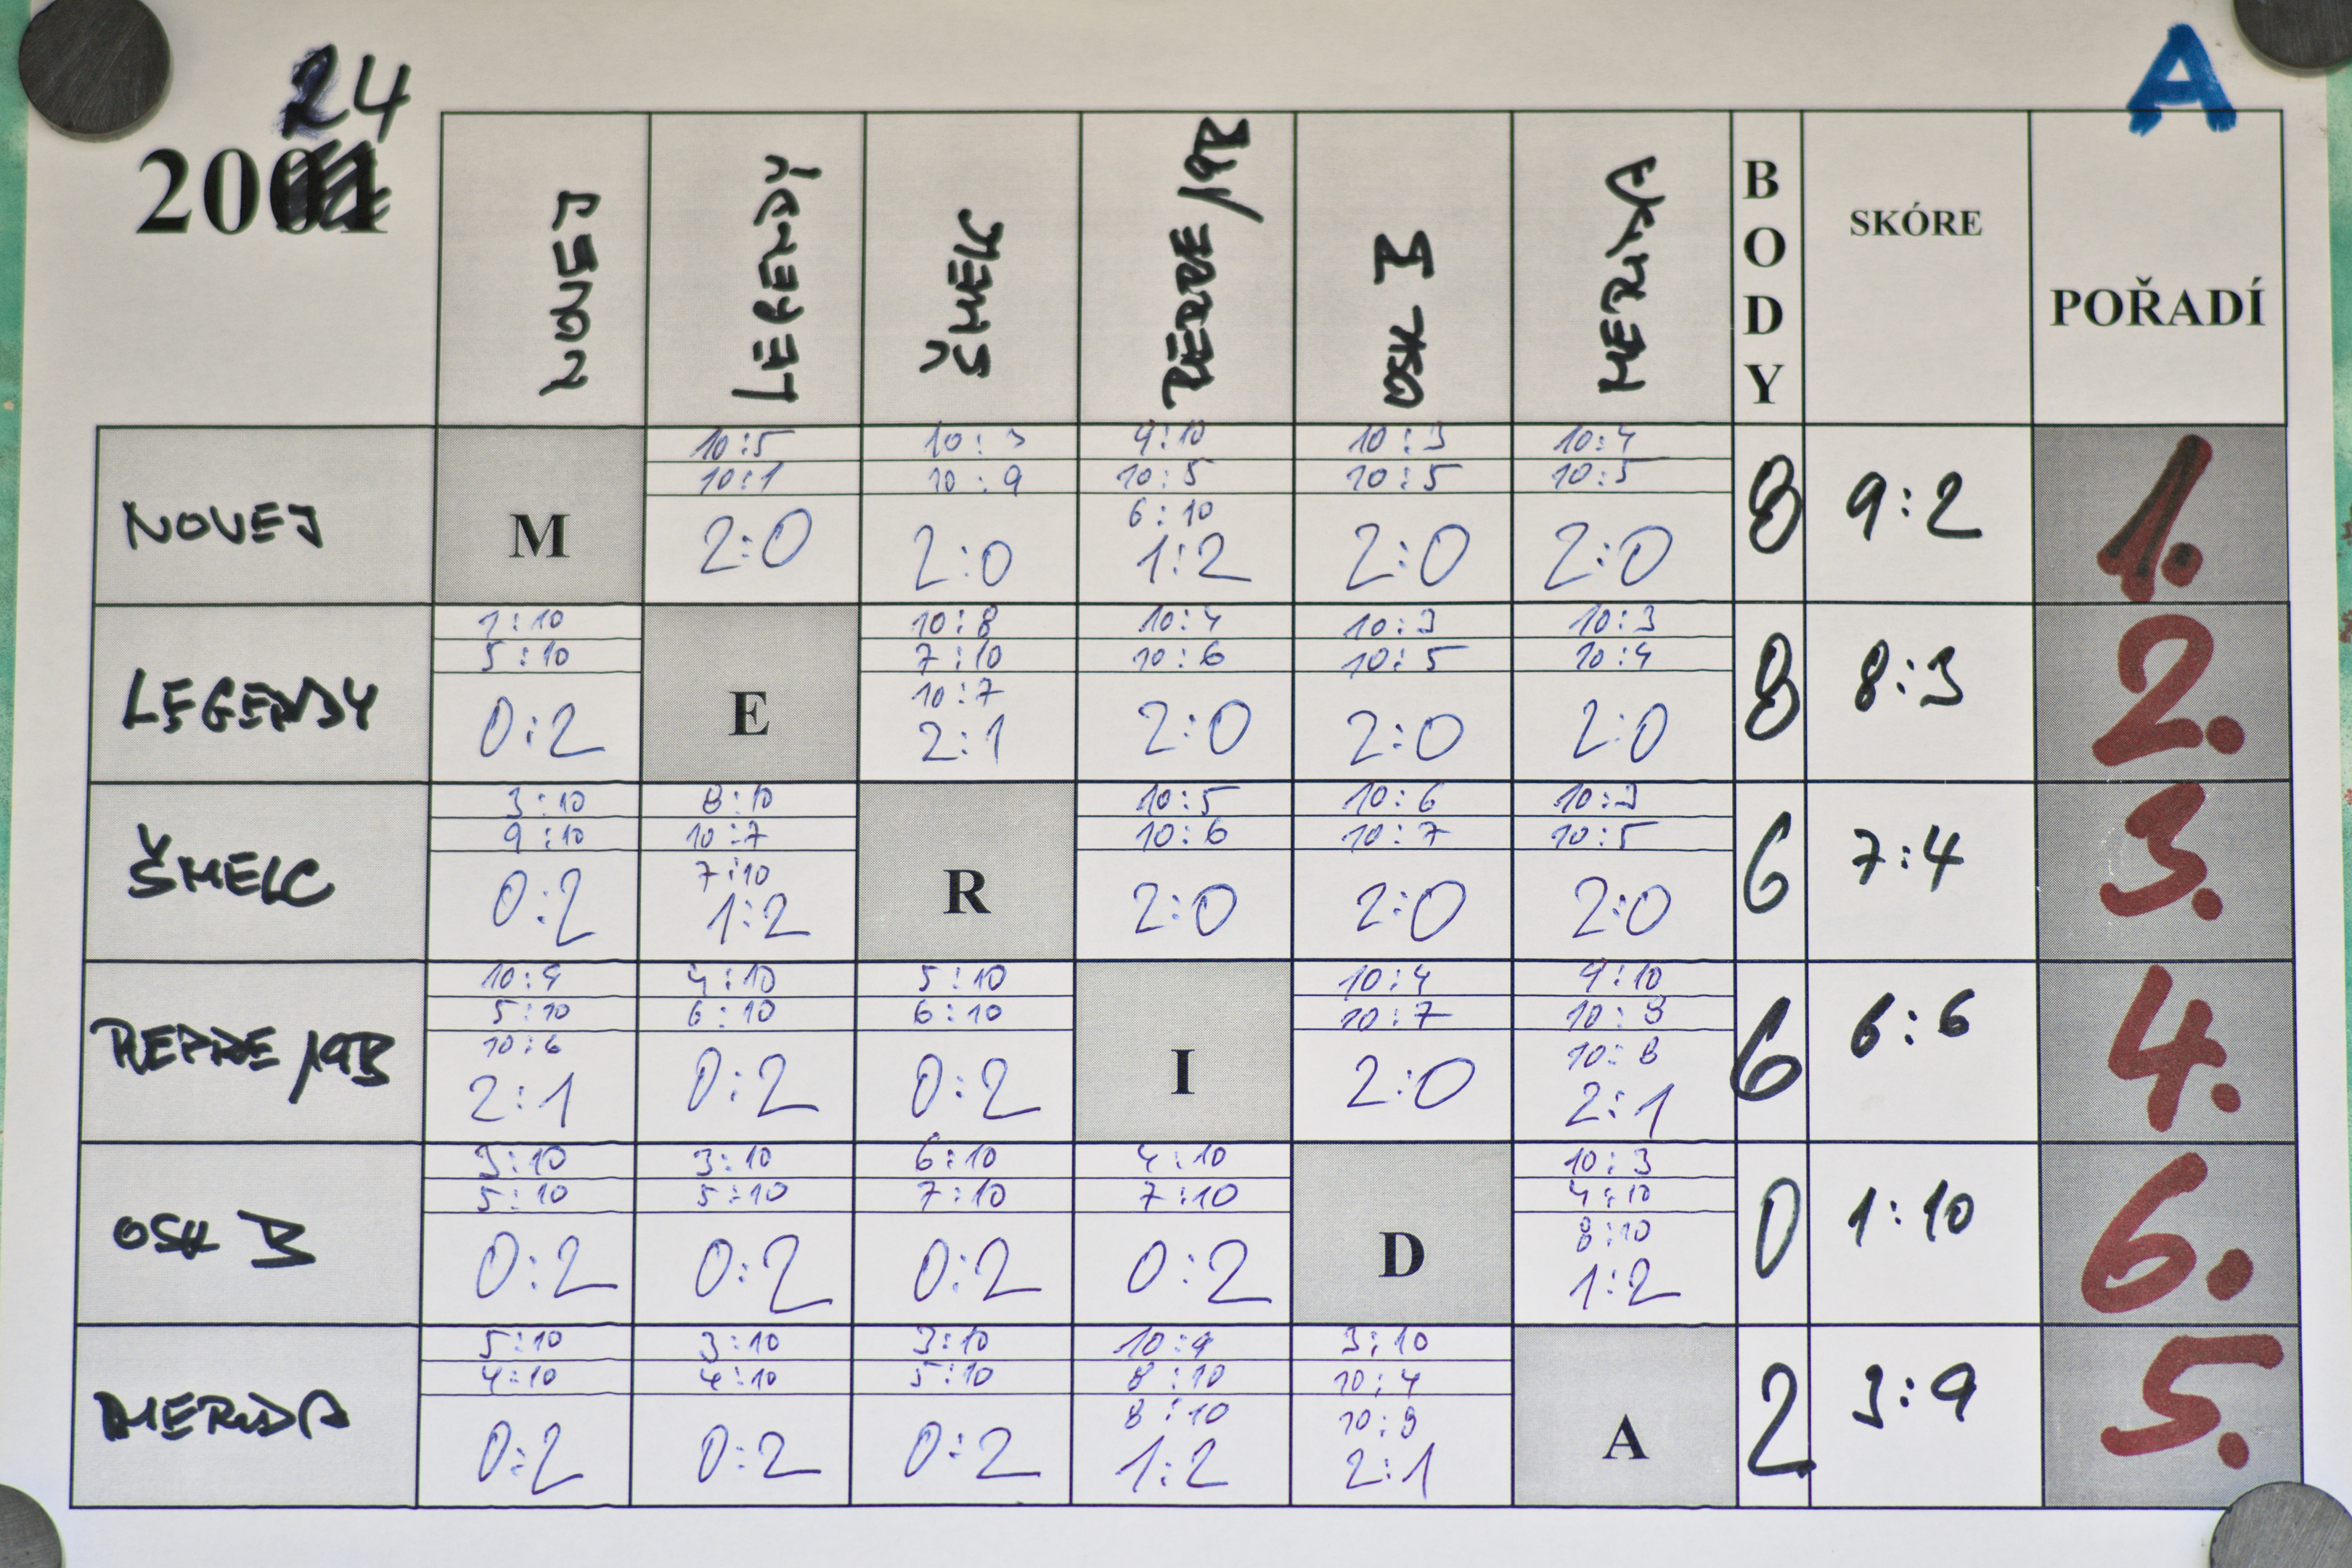 24
A
2001
NOVEJ LEGENDY ŠMELC REPRE/19B OSK B MERIDA BODY SKÓRE POŘADÍ
10:5 10:3 9:10 10:3 10:4
10:1 10:9 10:5 10:5 10:5
6:10
NOVEJ M 2:0 2:0 1:2 2:0 2:0 8 9:2 1.
1:10 10:8 10:4 10:3 10:3
5:10 7:10 10:6 10:5 10:4
10:7
LEGENDY 0:2 E 2:1 2:0 2:0 2:0 8 8:3 2.
3:10 8:10 10:5 10:6 10:3
9:10 10:7 10:6 10:7 10:5
7:10
ŠMELC 0:2 1:2 R 2:0 2:0 2:0 6 7:4 3.
10:9 4:10 5:10 10:4 9:10
5:10 6:10 6:10 10:7 10:8
10:6 10:8
REPRE/19B 2:1 0:2 0:2 I 2:0 2:1 6 6:6 4.
3:10 3:10 6:10 4:10 10:3
5:10 5:10 7:10 7:10 4:10
8:10
OSK B 0:2 0:2 0:2 0:2 D 1:2 0 1:10 6.
5:10 3:10 3:10 10:9 3:10
4:10 4:10 5:10 8:10 10:4
8:10 10:8
MERIDA 0:2 0:2 0:2 1:2 2:1 A 2 3:9 5.